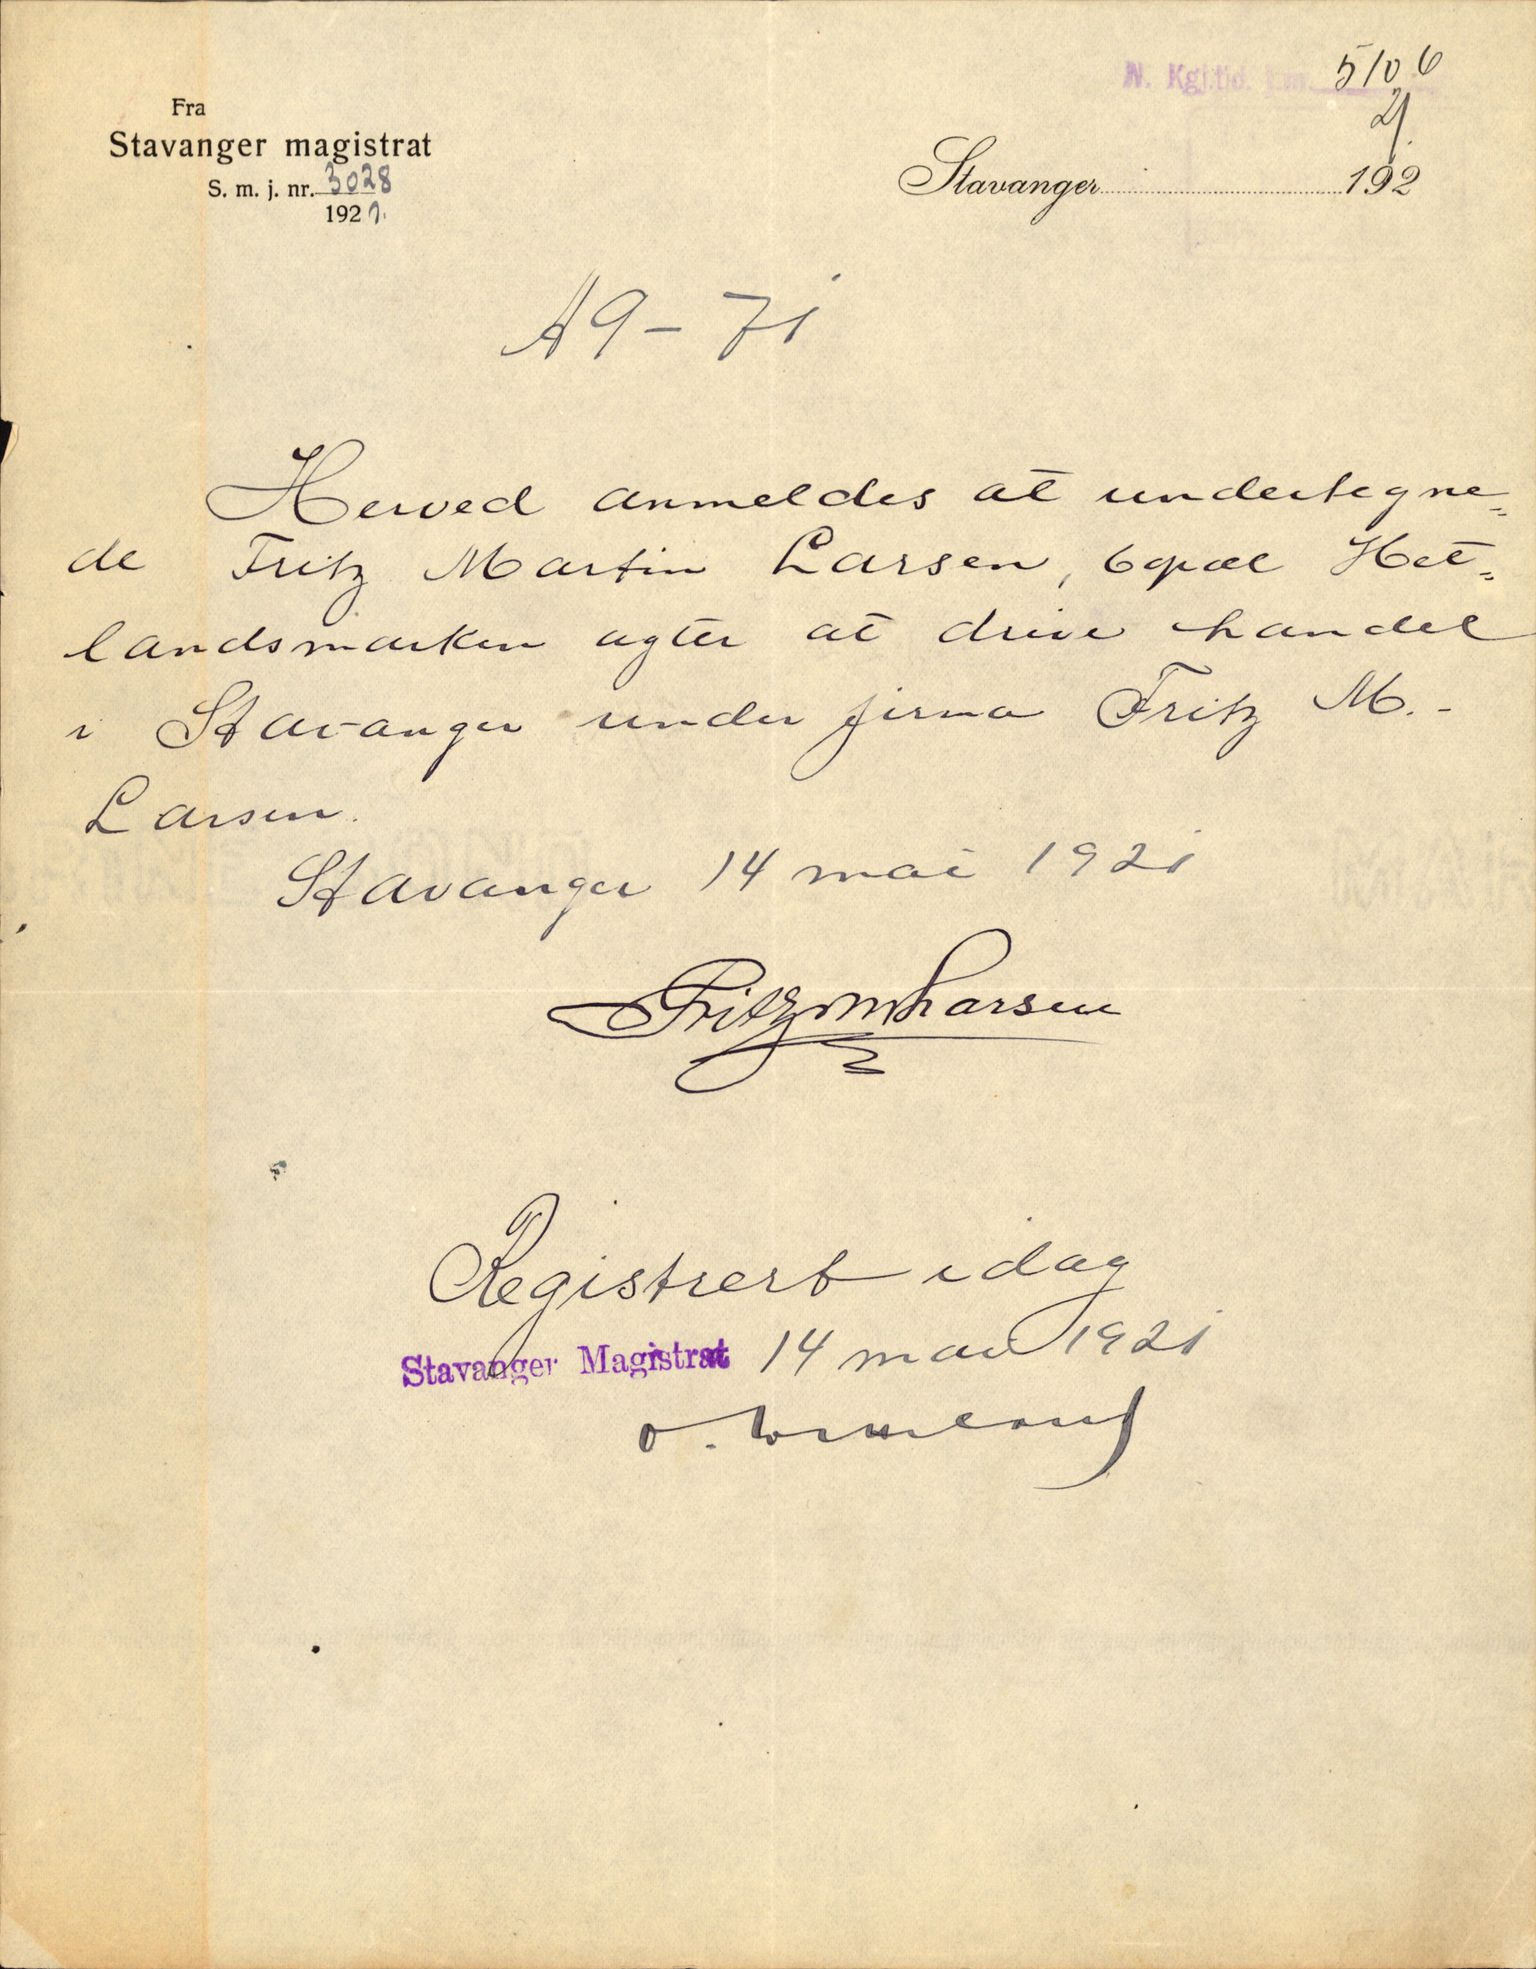 Fra
Stavanger magistrat
S. m. j. nr. 3028
1921.
N. Kgj.tid. j.nr. 5106
21.
Stavanger 192
A 9 - 71
Herved anmeldes at undertegne=
de Fritz Martin Larsen, bopæl Het=
landsmarken agter at drive handel
i Stavanger under firma Fritz M. -
Larsen.
Stavanger 14 mai 1921
Fritz M Larsen
Registrert idag
Stavanger Magistrat 14 mai 1921
O.